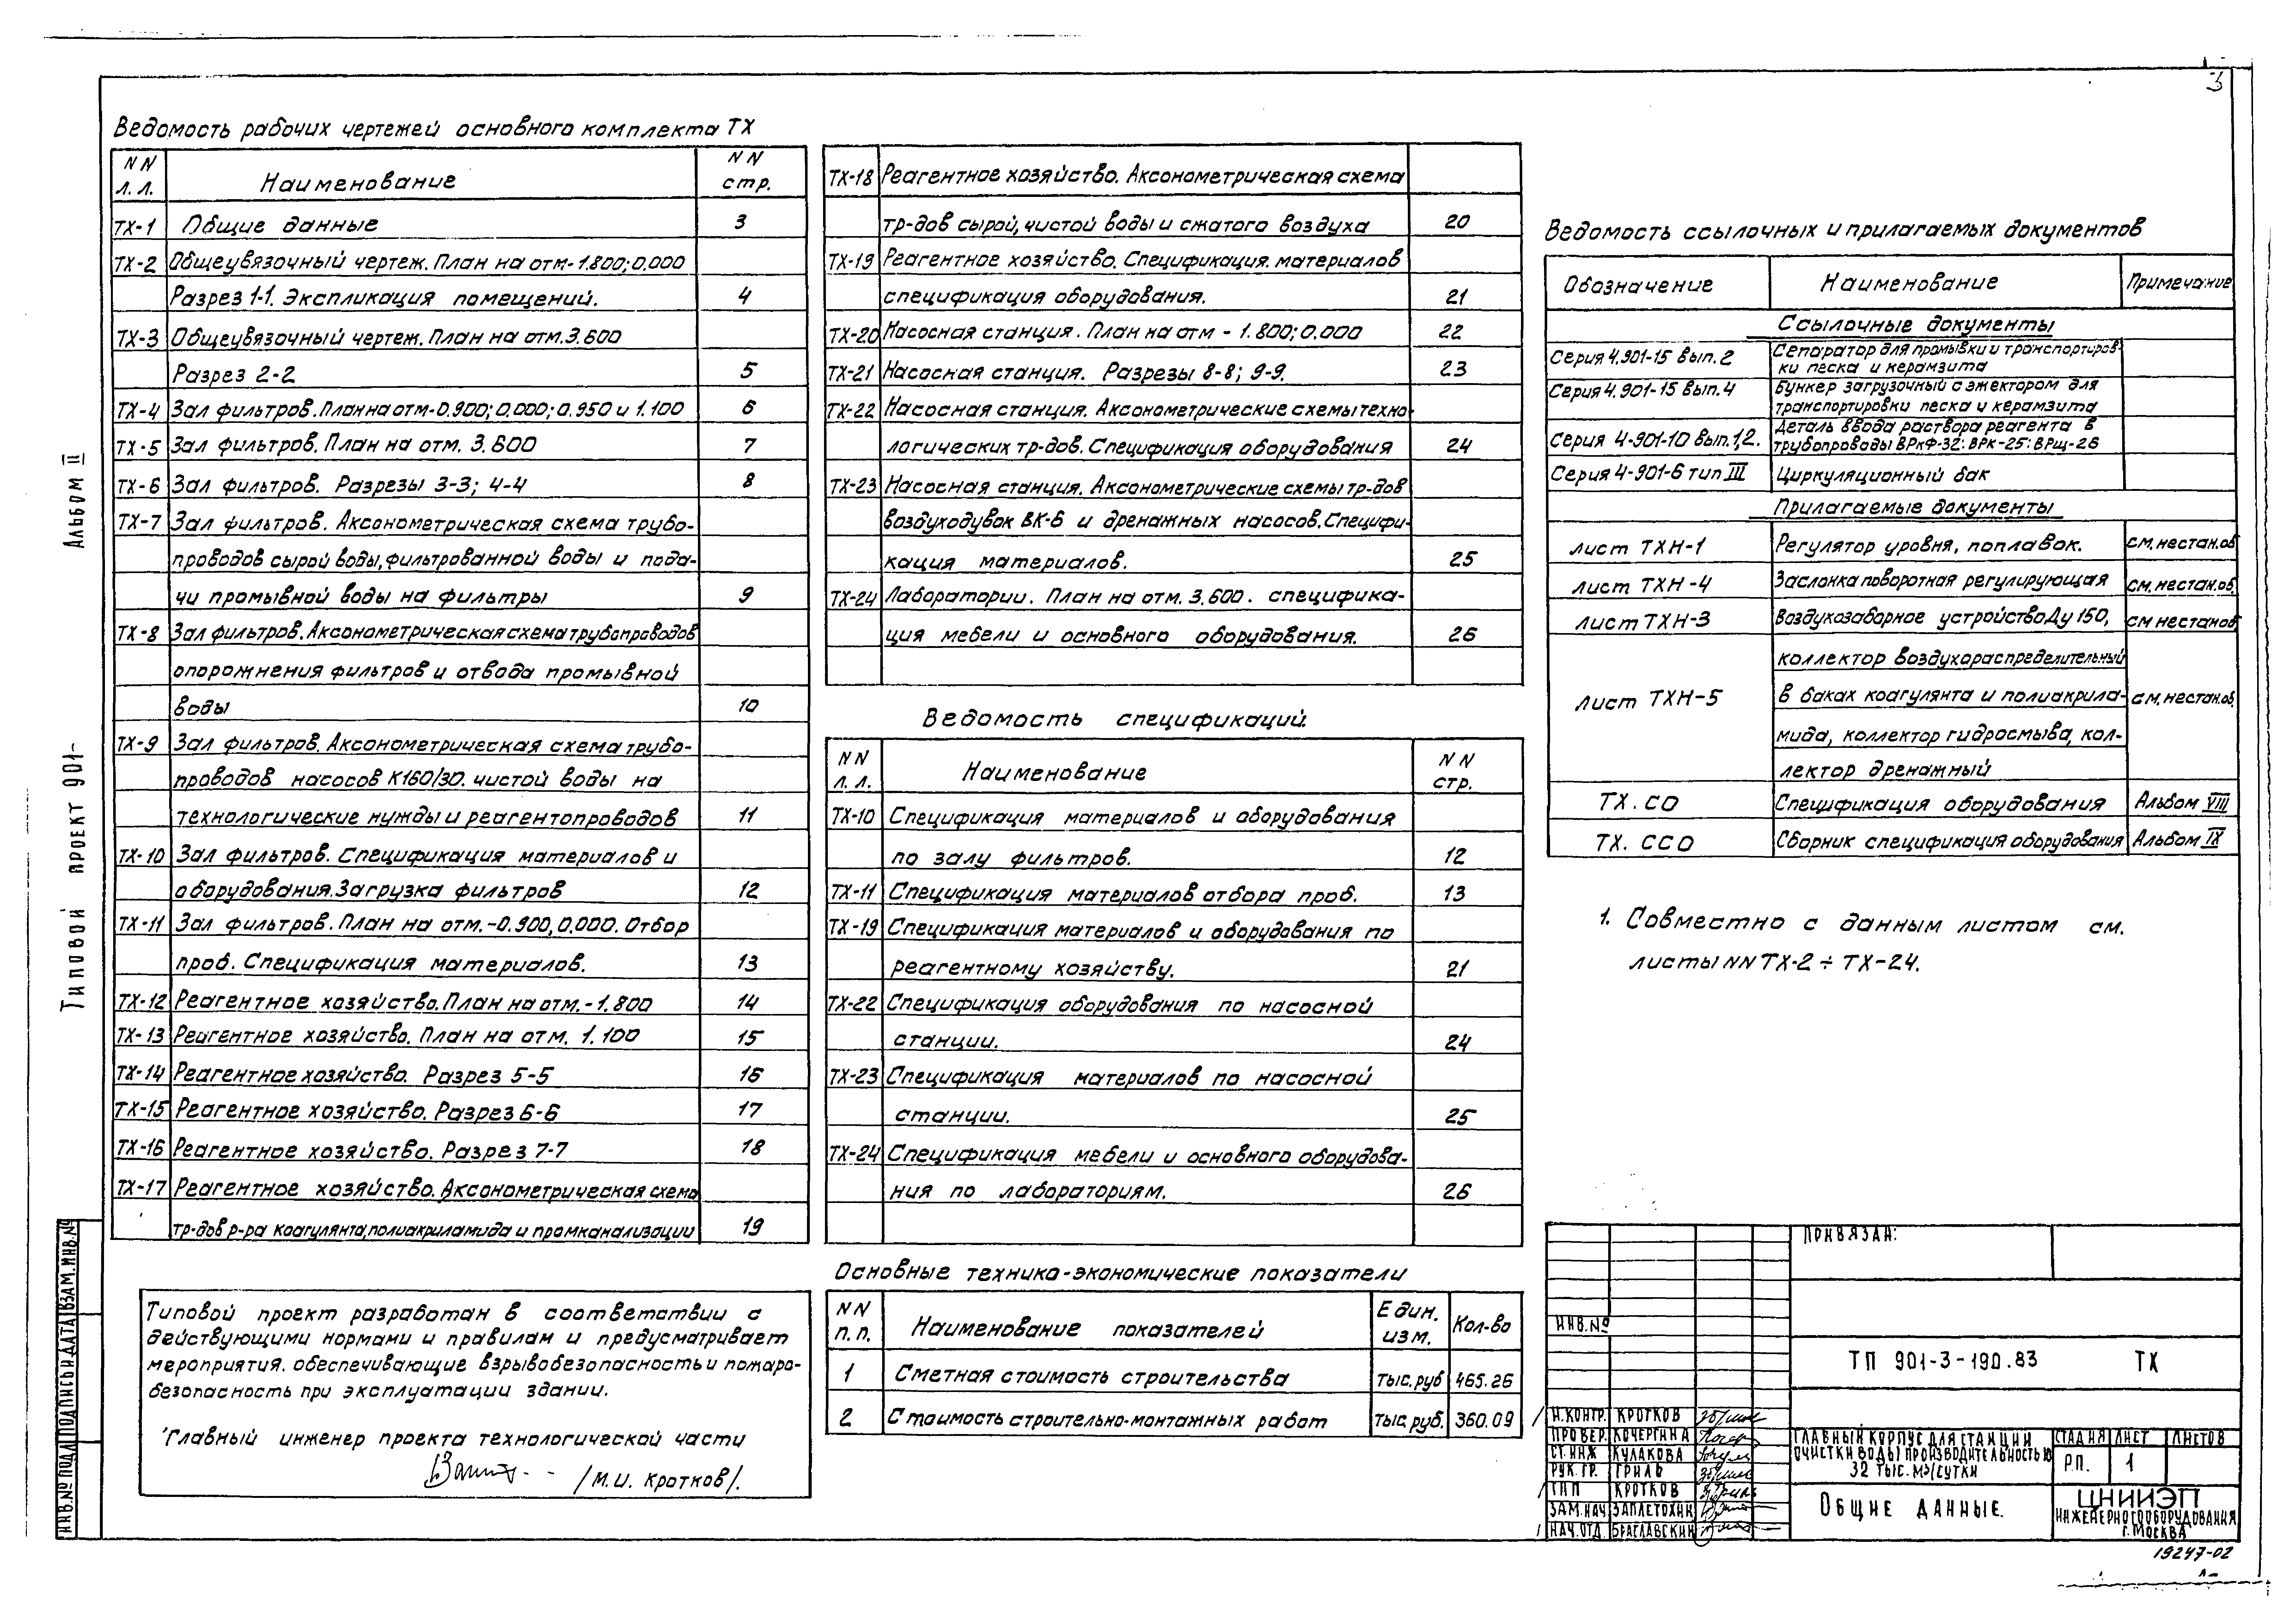 3
Ведомость рабочих чертежей основного комплекта ТХ
NN л.л. Наименование NN стр.
ТХ-1 Общие данные 3
ТХ-2 Общеувязочный чертеж. План на отм-1.800; 0.000
Разрез 1-1. Экспликация помещений. 4
ТХ-3 Общеувязочный чертеж. План на отм. 3.600
Разрез 2-2 5
ТХ-4 Зал фильтров. План на отм-0.900; 0,000; 0.950 и 1.100 6
ТХ-5 Зал фильтров. План на отм. 3.600 7
ТХ-6 Зал фильтров. Разрезы 3-3; 4-4 8
ТХ-7 Зал фильтров. Аксонометрическая схема трубо-
проводов сырой воды, фильтрованной воды и пода-
чи промывной воды на фильтры 9
ТХ-8 Зал фильтров. Аксонометрическая схема трубопроводов
опорожнения фильтров и отвода промывной
воды 10
ТХ-9 Зал фильтров. Аксонометрическая схема трубо-
проводов насосов К160/30. чистой воды на
технологические нужды и реагентопроводов 11
ТХ-10 Зал фильтров. Спецификация материалов и
оборудования. Загрузка фильтров 12
ТХ-11 Зал фильтров. План на отм.-0.900, 0,000. Отбор
проб. Спецификация материалов. 13
ТХ-12 Реагентное хозяйство. План на отм.-1.800 14
ТХ-13 Реагентное хозяйство. План на отм. 1.100 15
ТХ-14 Реагентное хозяйство. Разрез 5-5 16
ТХ-15 Реагентное хозяйство. Разрез 6-6 17
ТХ-16 Реагентное хозяйство. Разрез 7-7 18
ТХ-17 Реагентное хозяйство. Аксонометрическая схема
тр-дов р-ра коагулянта, полиакриламида и промканализации 19
ТХ-18 Реагентное хозяйство. Аксонометрическая схема
тр-дов сырой, чистой воды и сжатого воздуха 20
ТХ-19 Реагентное хозяйство. Спецификация. материалов
спецификация оборудования. 21
ТХ-20 Насосная станция. План на отм - 1.800; 0.000 22
ТХ-21 Насосная станция. Разрезы 8-8; 9-9. 23
ТХ-22 Насосная станция. Аксонометрические схемы техно-
логических тр-дов. Спецификация оборудования 24
ТХ-23 Насосная станция. Аксонометрические схемы тр-дов
воздуходувок ВК-6 и дренажных насосов. Специфи-
кация материалов. 25
ТХ-24 Лаборатории. План на отм. 3.600. специфика-
ция мебели и основного оборудования. 26
Ведомость спецификаций
NN л.л. Наименование NN стр.
ТХ-10 Спецификация материалов и оборудования
по залу фильтров. 12
ТХ-11 Спецификация материалов отбора проб. 13
ТХ-19 Спецификация материалов и оборудования по
реагентному хозяйству. 21
ТХ-22 Спецификация оборудования по насосной
станции. 24
ТХ-23 Спецификация материалов по насосной
станции. 25
ТХ-24 Спецификация мебели и основного оборудова-
ния по лабораториям. 26
Основные технико-экономические показатели
NN п.п. Наименование показателей Един. изм. Кол-во
1 Сметная стоимость строительства тыс.руб 465.26
2 Стоимость строительно-монтажных работ тыс.руб. 360.09
Типовой проект разработан в соответствии с
действующими нормами и правилам и предусматривает
мероприятия. обеспечивающие взрывобезопасность и пожаро-
безопасность при эксплуатации здании.
Главный инженер проекта технологической части
/М.И. Кротков/.
Ведомость ссылочных и прилагаемых документов
Обозначение Наименование Примечание
Ссылочные документы
Серия 4.901-15 вып. 2 Сепаратор для промывки и транспортиров-
ки песка и керамзита
Серия 4.901-15 вып. 4 Бункер загрузочный с эжектором для
транспортировки песка и керамзита
Серия 4-901-10 вып. 1,2. Деталь ввода раствора реагента в
трубопроводы ВРкФ-32: ВРК-25: ВРщ-26
Серия 4-901-6 тип III Циркуляционный бак
Прилагаемые документы
лист ТХН-1 Регулятор уровня, поплавок. см.нестан.об
лист ТХН-4 Заслонка поворотная регулирующая см.нестан.об.
лист ТХН-3 Воздухозаборное устройство Ду 150, см нестан.об
лист ТХН-5 коллектор воздухораспределительный
в баках коагулянта и полиакрила- см.нестан.об.
мида, коллектор гидросмыва, кол-
лектор дренажный
ТХ.СО Спецификация оборудования Альбом VIII
ТХ. ССО Сборник спецификация оборудования Альбом IX
1. Совместно с данным листом см.
листы NN ТХ-2 ÷ ТХ-24.
Альбом II
Типовой проект 901-
ИНВ.№ ПОДЛ ПОДПИСЬ И ДАТА ВЗАМ.ИНВ.№
ПРИВЯЗАН:
ИНВ.№
ТП 901-3-190.83 ТХ
Н.КОНТР. КРОТКОВ
ПРОВЕР. КОЧЕРГИНА
СТ.ИНЖ КУЛАКОВА
РУК. ГР. ГРИЛЬ
ГИП КРОТКОВ
ЗАМ.НАЧ ЗАПЛЕТОХИН
НАЧ.ОТД БРАСЛАВСКИЙ
ГЛАВНЫЙ КОРПУС ДЛЯ СТАНЦИИ
ОЧИСТКИ ВОДЫ ПРОИЗВОДИТЕЛЬНОСТЬЮ
32 ТЫС. М3/СУТКИ
СТАДИЯ ЛИСТ ЛИСТОВ
Р.П. 1
ОБЩИЕ ДАННЫЕ.
ЦНИИЭП
ИНЖЕНЕРНОГО ОБОРУДОВАНИЯ
Г. МОСКВА
19247-02